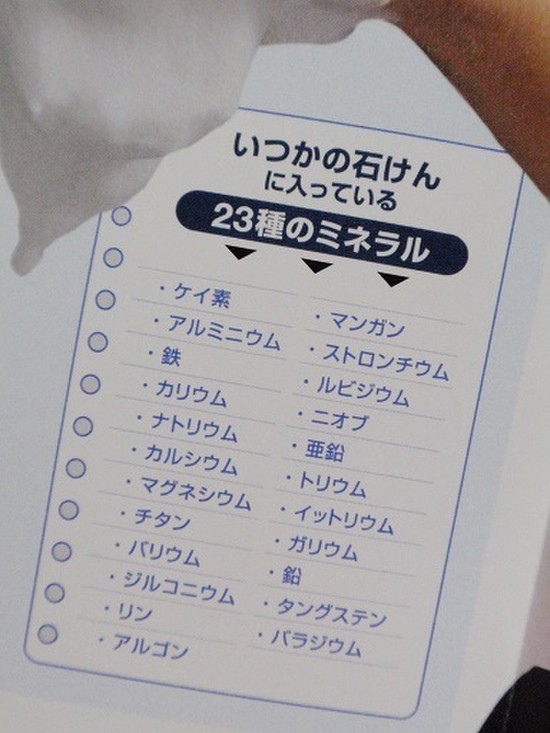 いつかの石けん
に入っている
23種のミネラル
・ケイ素
・アルミニウム
・鉄
・カリウム
・ナトリウム
・カルシウム
・マグネシウム
・チタン
・バリウム
・ジルコニウム
・リン
・アルゴン
・マンガン
・ストロンチウム
・ルビジウム
・ニオブ
・亜鉛
・トリウム
・イットリウム
・ガリウム
・鉛
・タングステン
・パラジウム